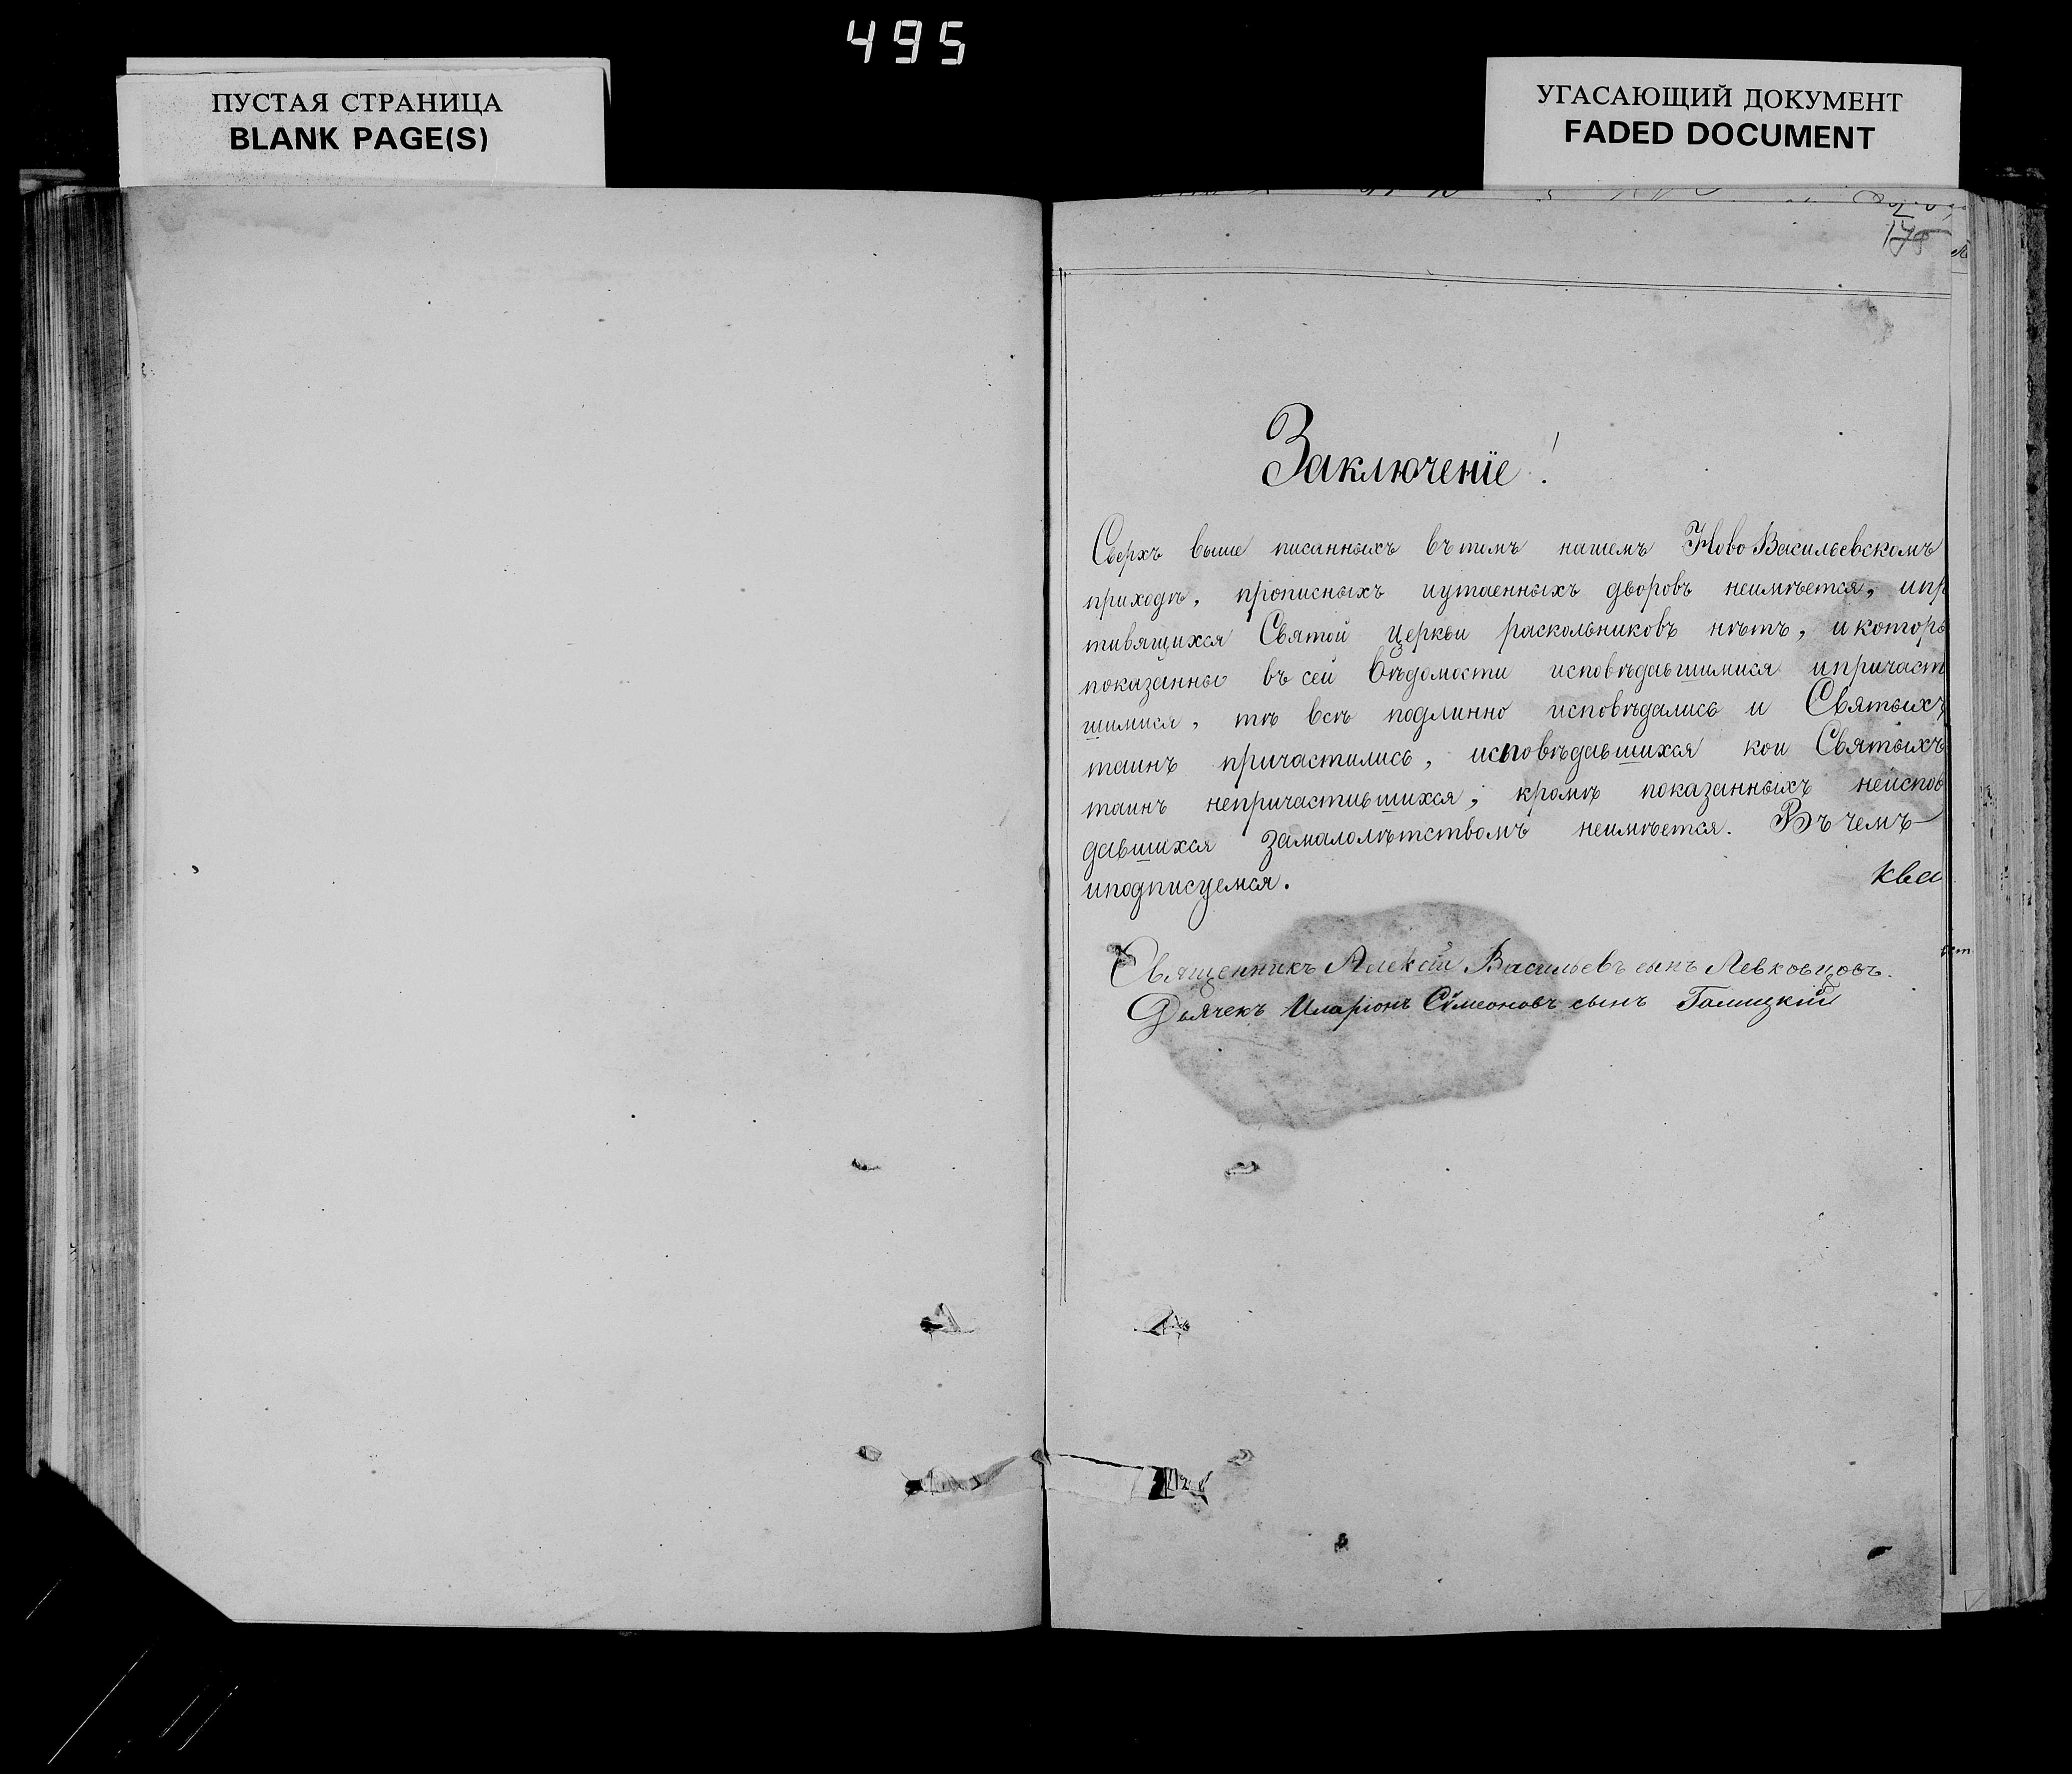 495
ПУСТАЯ СТРАНИЦА
BLANK PAGE(S)
УГАСАЮЩИЙ ДОКУМЕНТ
FADED DOCUMENT
Заключенїе !
Сверхъ выше писанныхъ въ томъ нашемъ Ново Васильевскомъ
приходѣ, прописныхъ иутаенныхъ дворовъ неимѣется, ипр
тивящихся Святой Церкви раскольниковъ нѣтъ, икоторы
показанны въ сей Вѣдомости исповѣдавшимися ипричаст
шимися, тѣ всѣ подлинно исповѣдались и Святыхъ
таинъ причастились, исповѣдавшихся кои Святыхъ
таинъ непричастившихся, кромѣ показанныхъ неиспов
давшихся замалолѣтствомъ неимѣется. Въ чемъ
иподписуемся.
ква
Священникъ Алексѣй Васильевъ сынъ Левковцовъ.
Дьячекъ Иларіонъ Сѵмеоновъ сынъ Галицкій